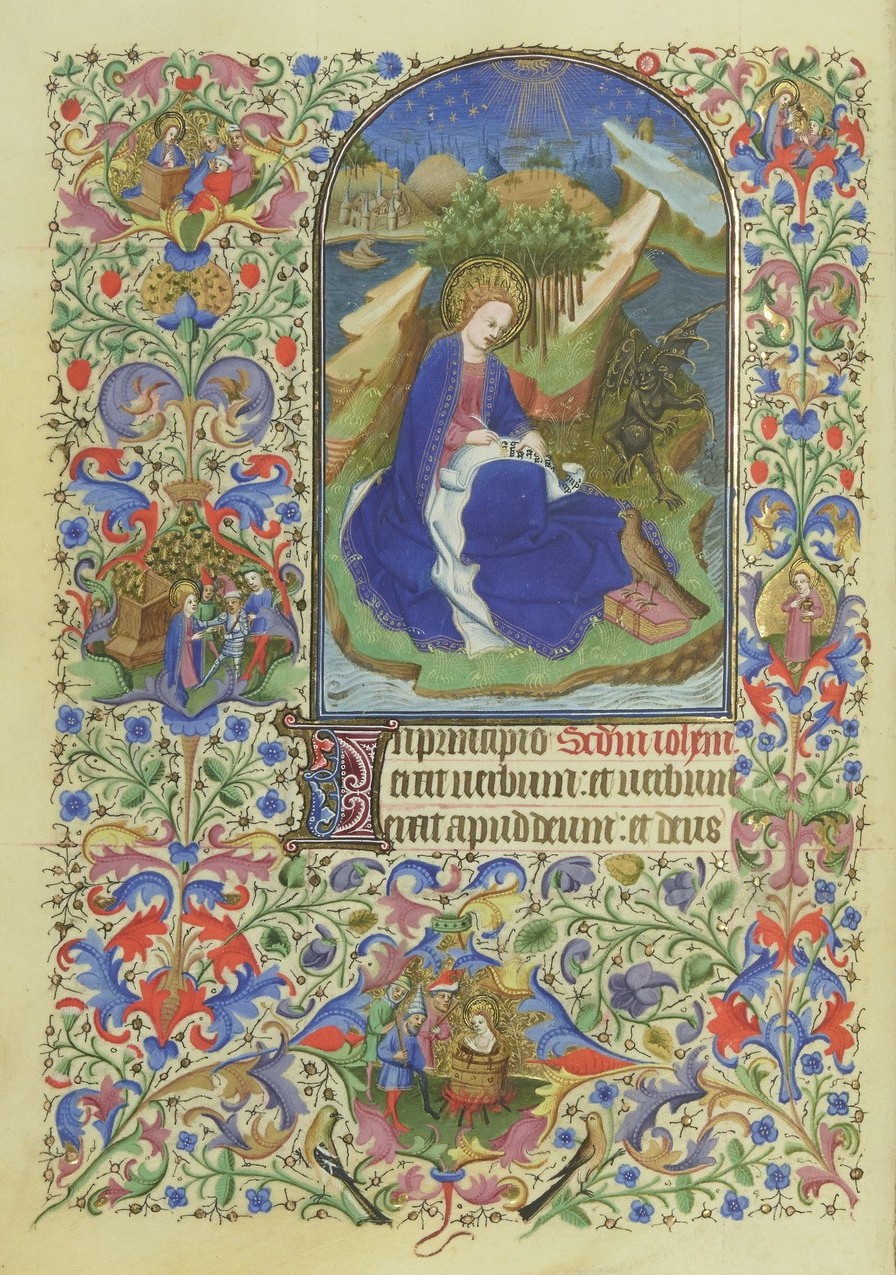 In principio Scdm iohem.
erat uerbum: et uerbum
erat apud deum: et deus